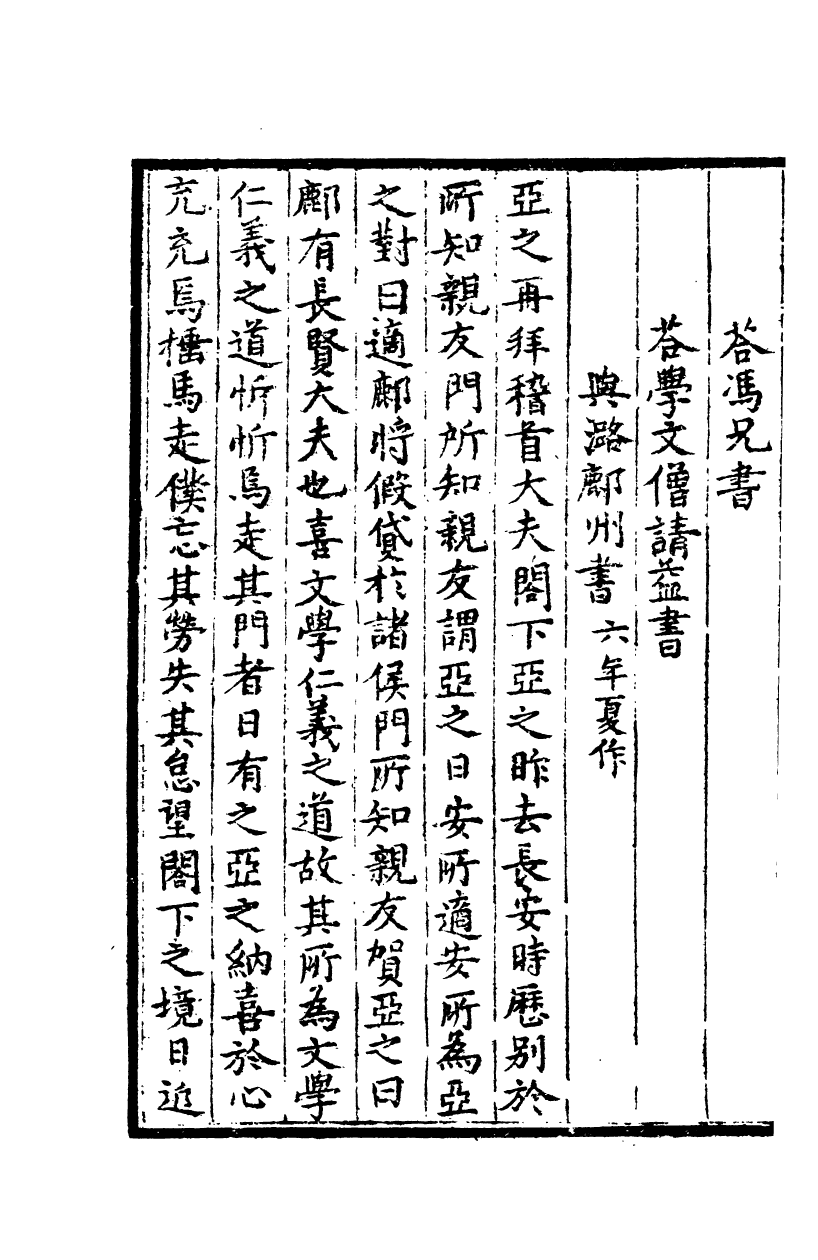 荅馮兄書
荅學文僧請益書
與潞鄜州書 六年夏作
亞之再拜稽首大夫閤下亞之昨去長安時歷别於
所知親友門所知親友謂亞之日安所適安所為亞
之對曰適鄜將假貸於諸侯門所知親友賀亞之曰
鄜有長賢大夫也喜文學仁義之道故其所為文學
仁義之道忻忻焉走其門者日有之亞之納喜於心
充充焉櫪馬走僕忘其勞失其怠望閤下之境日近